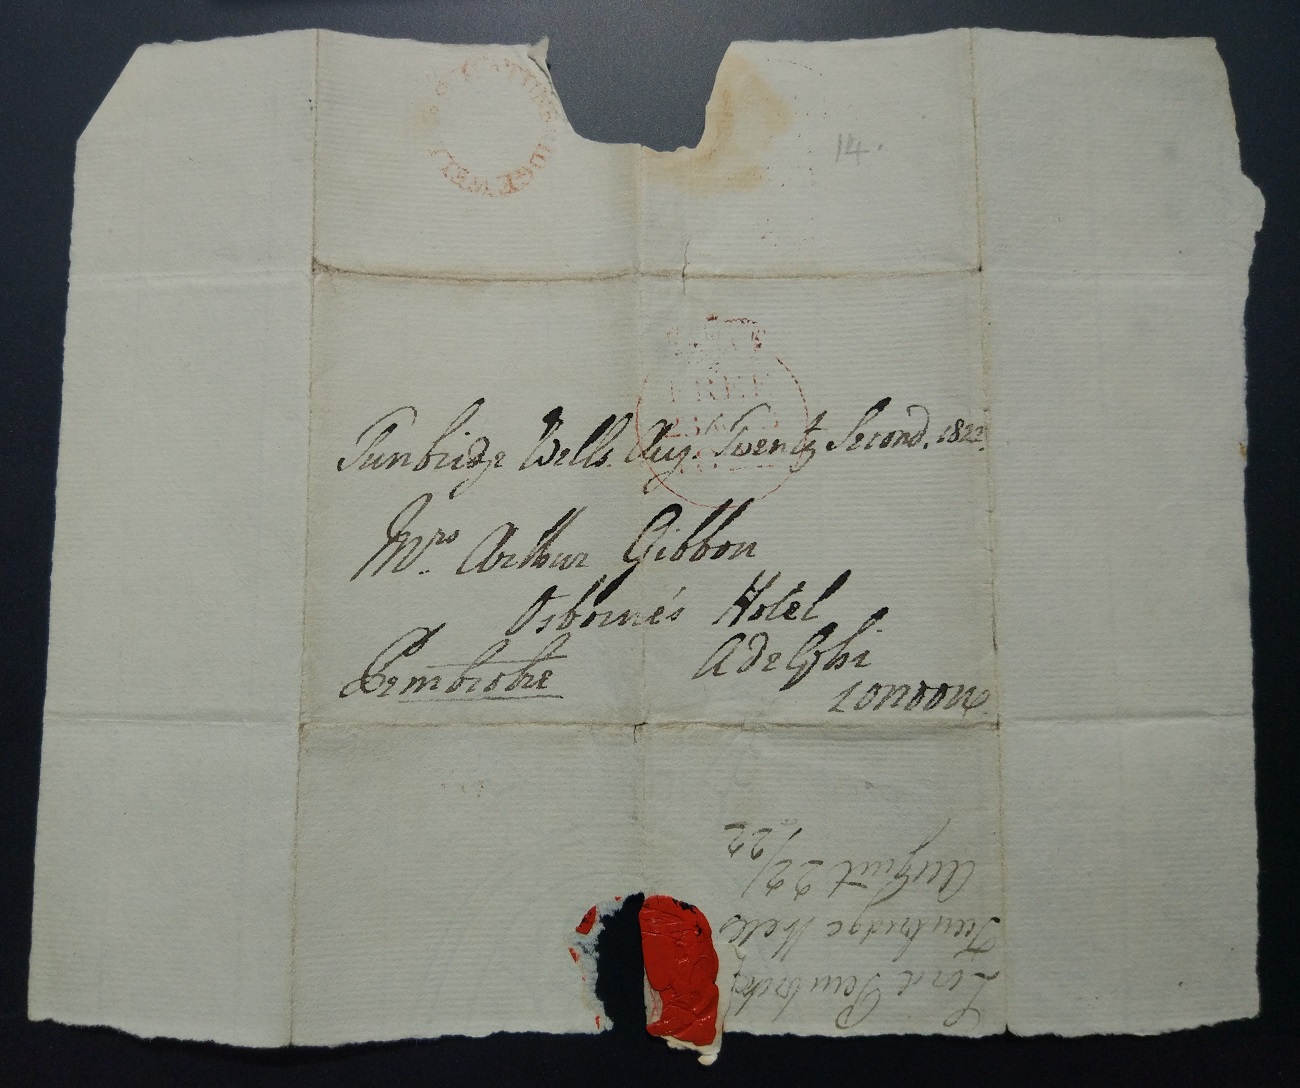 TUNBRIDGE WELLS
14.
FREE
Tunbridge Wells. Aug. Twenty Second. 1822.
Mrs. Arthur Gibbon
Osborne's Hotel
Pembroke Adelphi
London
Lord Pembroke
Tunbridge Wells
August 22/
/22